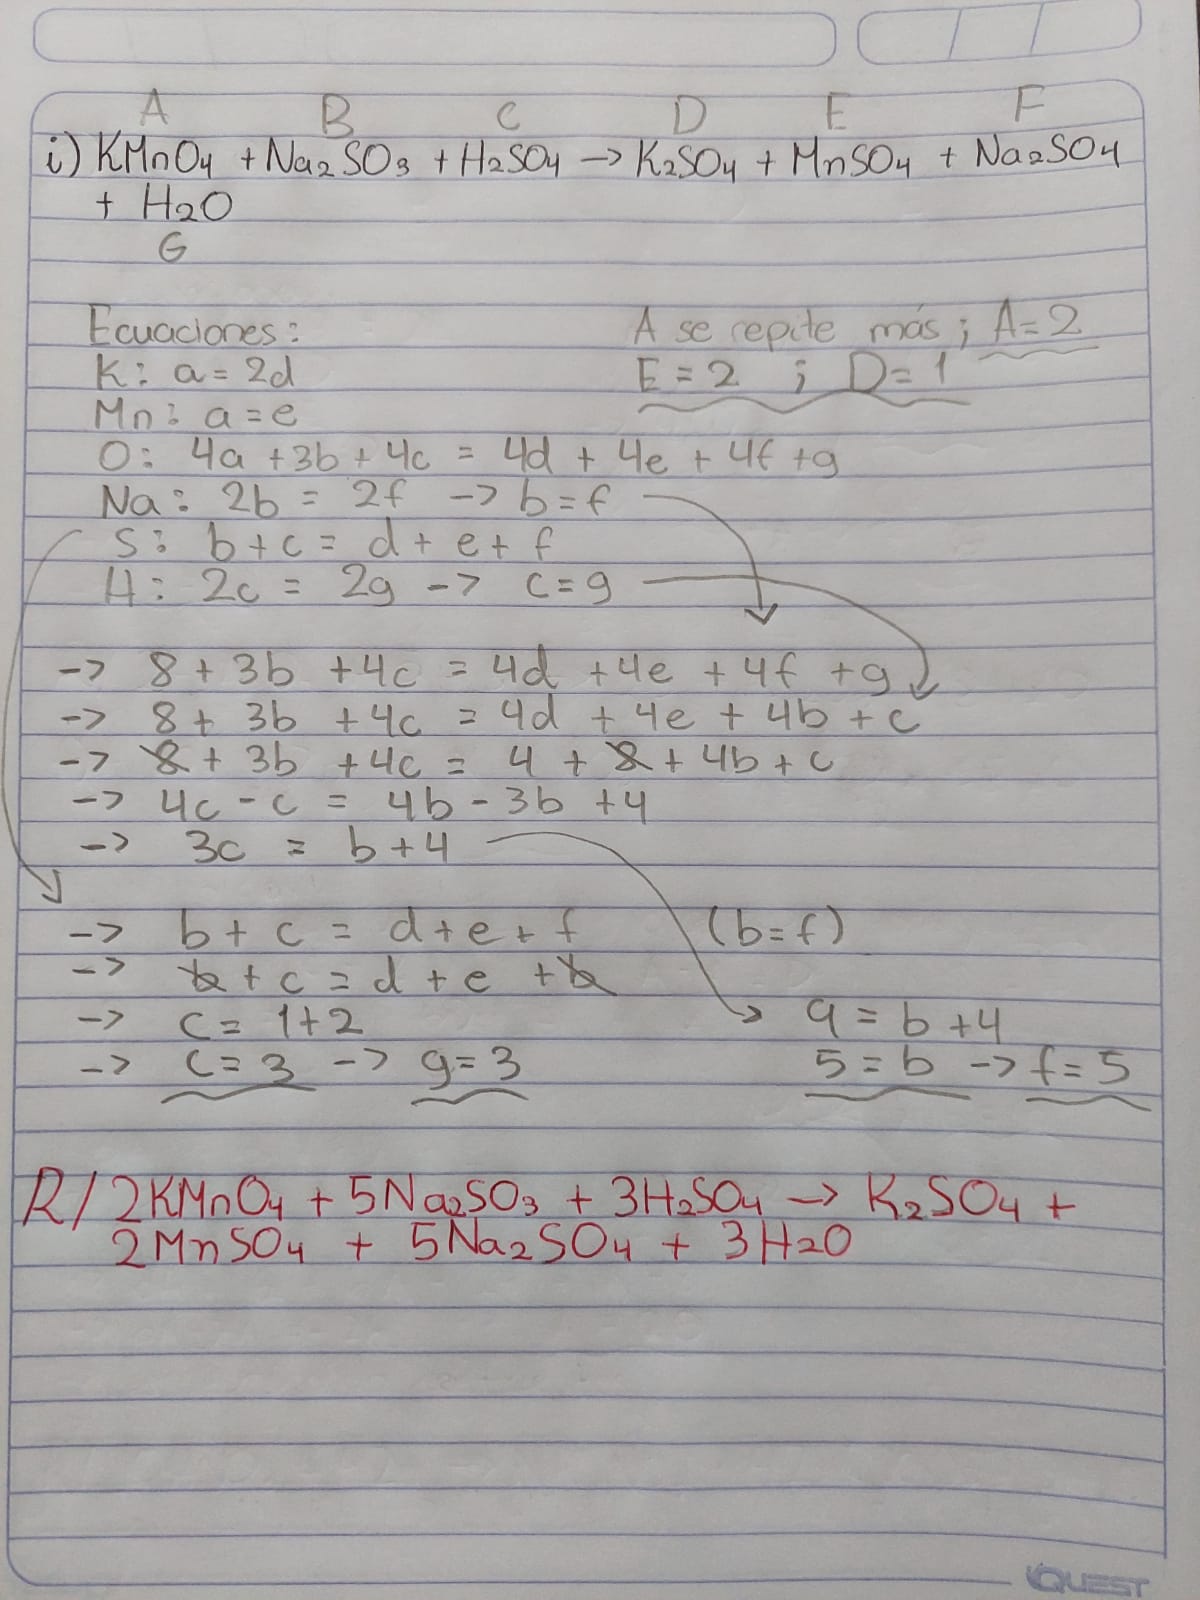 A B C D E F
i) KMnO4 + Na2SO3 + H2SO4 -> K2SO4 + MnSO4 + Na2SO4
+ H2O
G
Ecuaciones:
A se repite más ; A=2
K: a = 2d
E = 2 ; D = 1
Mn: a = e
O: 4a + 3b + 4c = 4d + 4e + 4f + g
Na: 2b = 2f -> b = f
S: b + c = d + e + f
H: 2c = 2g -> c = g
-> 8 + 3b + 4c = 4d + 4e + 4f + g
-> 8 + 3b + 4c = 4d + 4e + 4b + c
-> 8 + 3b + 4c = 4 + 8 + 4b + c
-> 4c - c = 4b - 3b + 4
-> 3c = b + 4
-> b + c = d + e + f (b=f)
-> b + c = d + e + b
-> c = 1+2
9 = b + 4
-> c = 3 -> g = 3
5 = b -> f = 5
R/ 2KMnO4 + 5Na2SO3 + 3H2SO4 -> K2SO4 +
2MnSO4 + 5Na2SO4 + 3H2O
QUEST